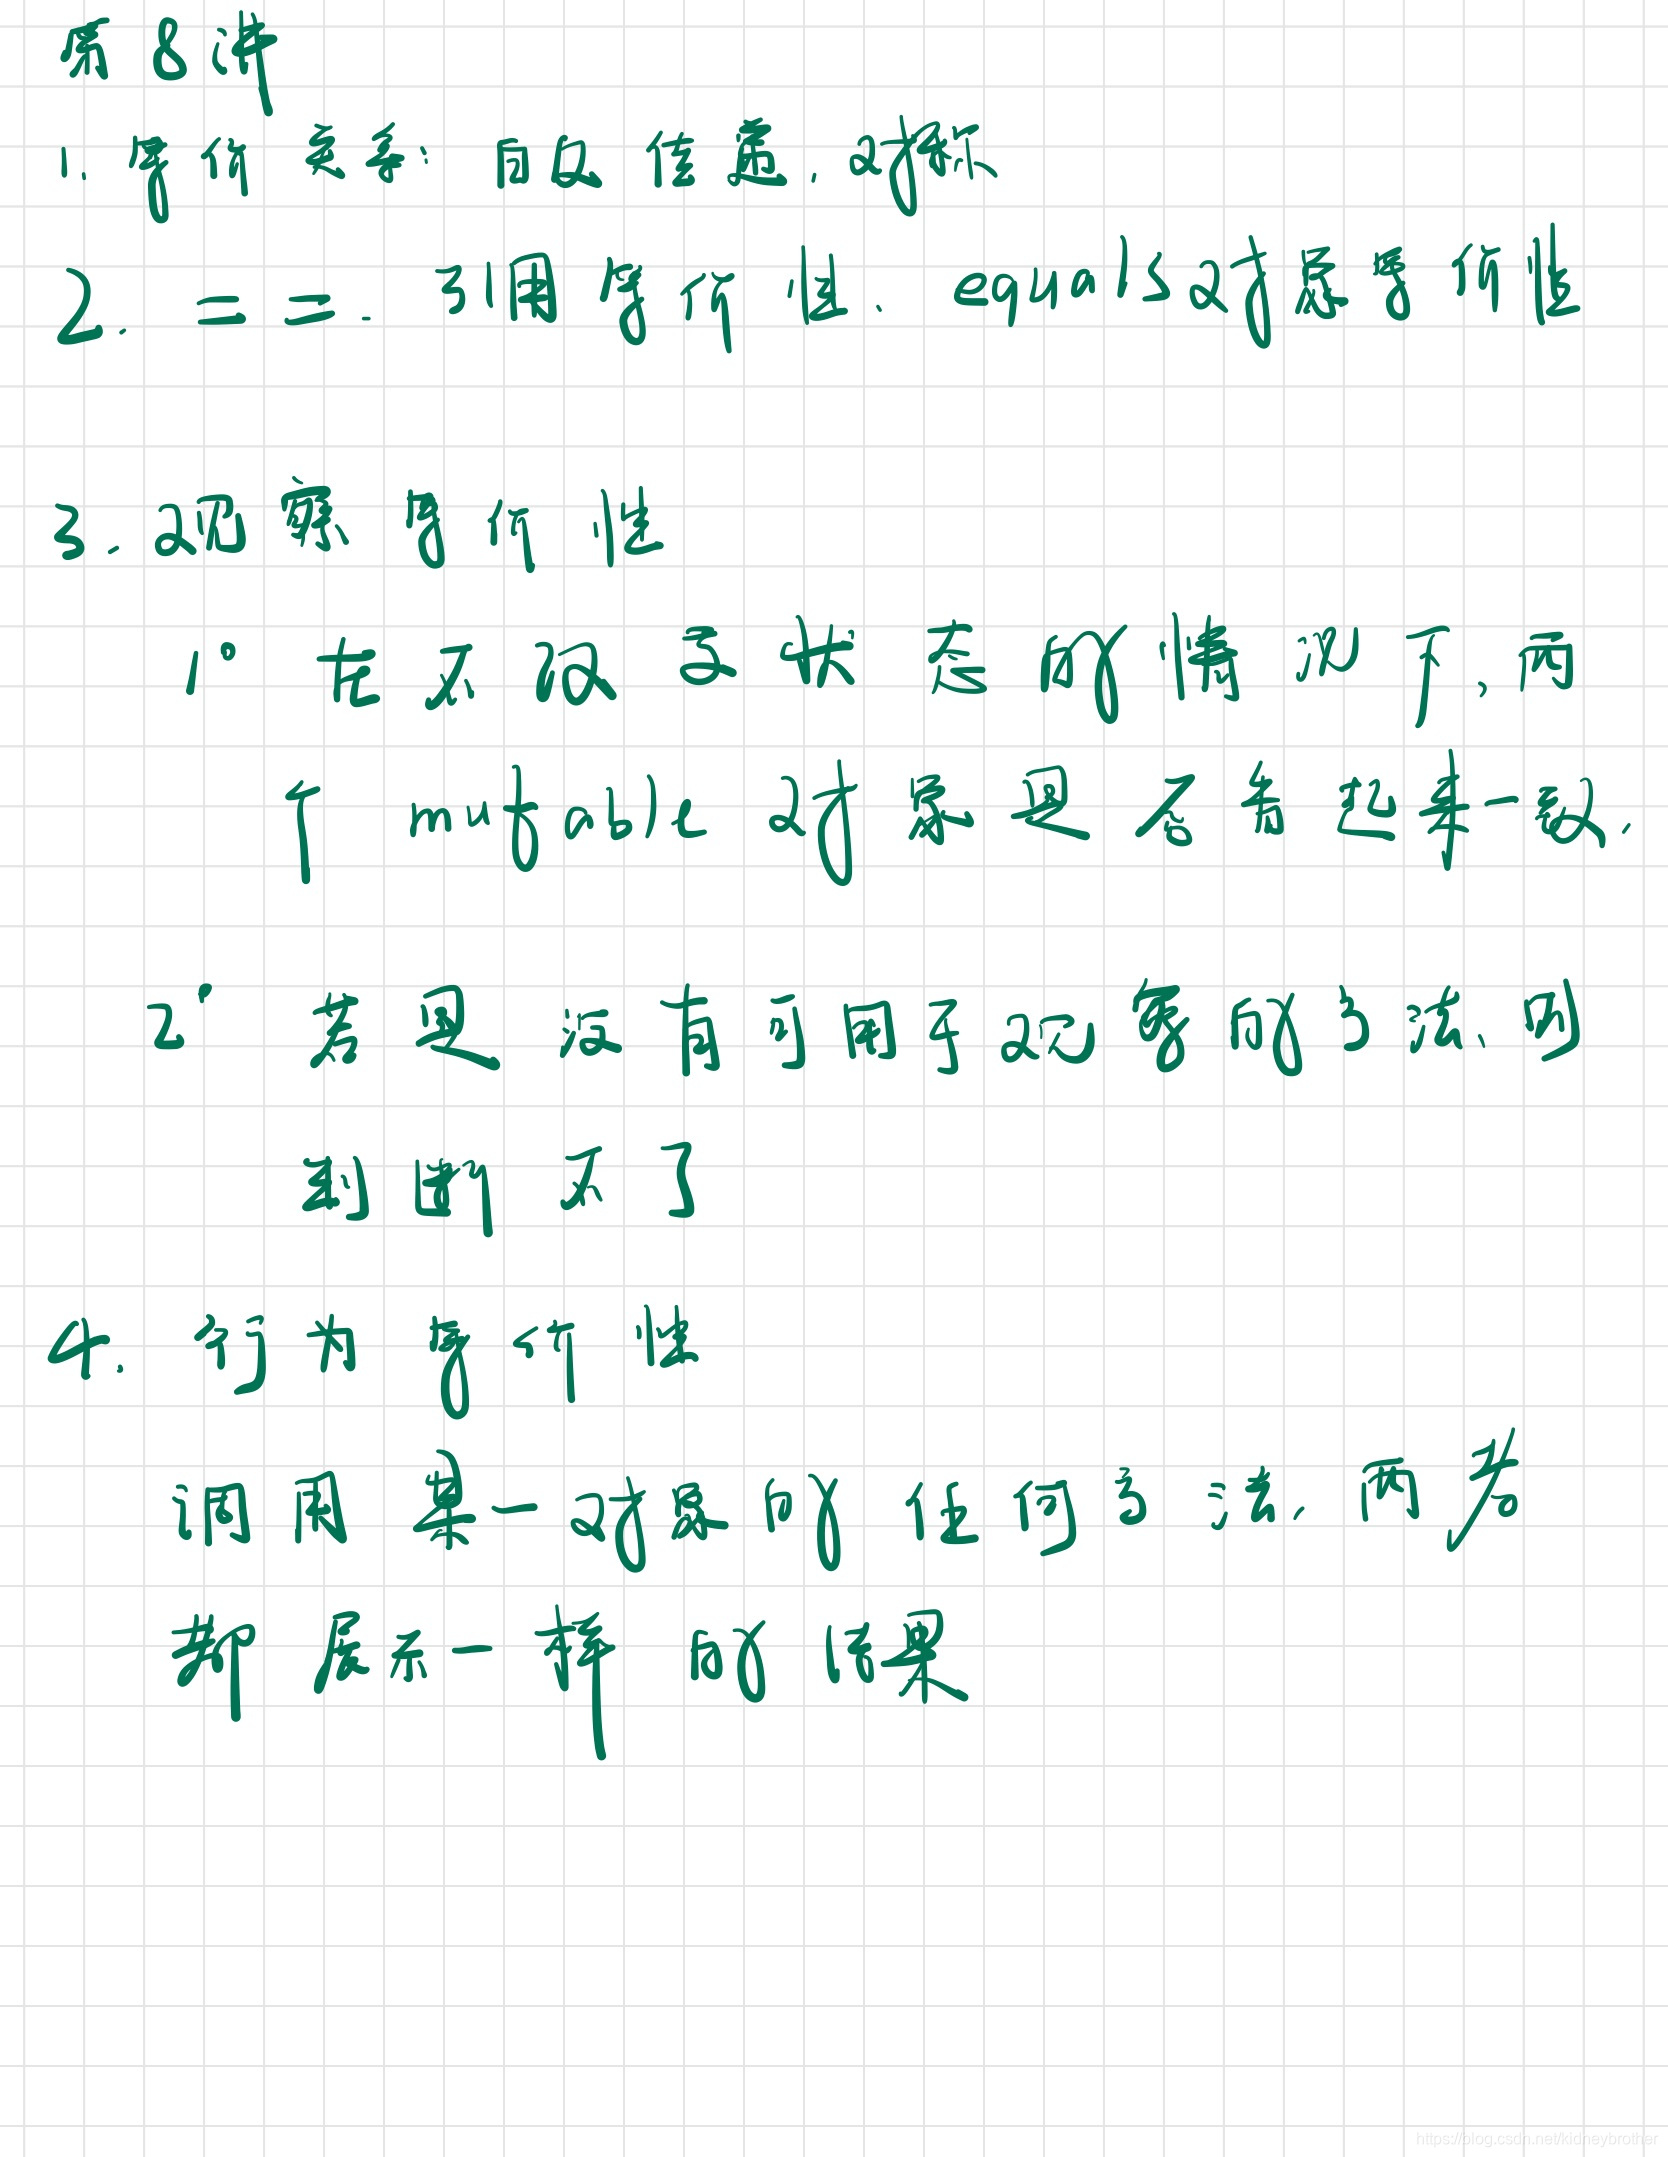 第8讲
1. 等价关系: 自反 传递、对称
2. ==. 引用等价性、equals对象等价性
3. 观察等价性
1° 在不改变状态的情况下,两
个 mutable 对象是否看起来一致.
2° 若是没有可用于观察的方法、则
判断不了
4. 行为等价性
调用某一对象的任何方法, 两者
都展示一样的结果
https://blog.csdn.net/kidneybrother